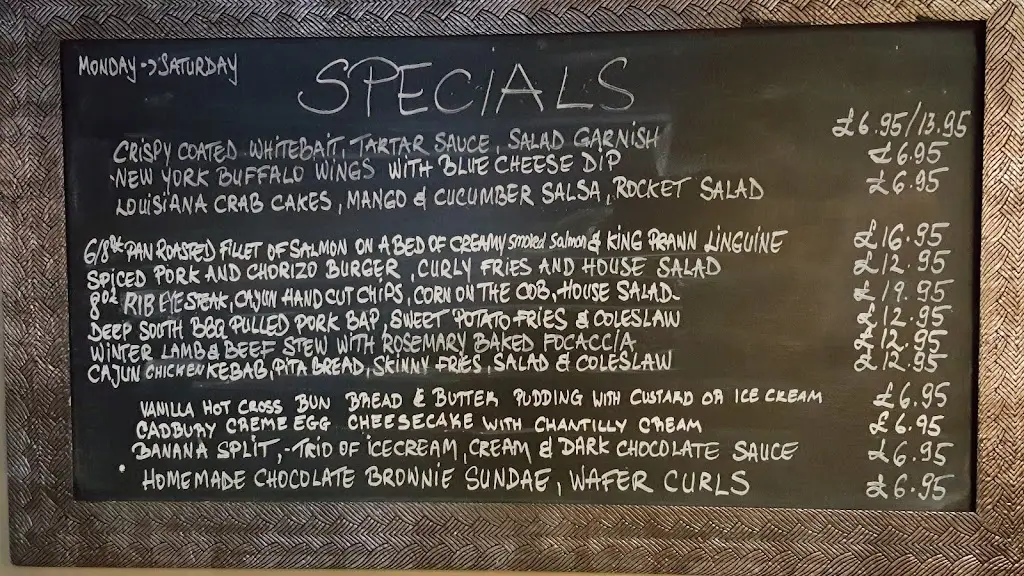 MONDAY -> SATURDAY
SPECIALS
CRISPY COATED WHITEBAIT, TARTAR SAUCE, SALAD GARNISH £6.95/13.95
NEW YORK BUFFALO WINGS WITH BLUE CHEESE DIP £6.95
LOUISIANA CRAB CAKES, MANGO & CUCUMBER SALSA, ROCKET SALAD £6.95
6/8oz PAN ROASTED FILLET OF SALMON ON A BED OF CREAMY Smoked Salmon & KING PRAWN LINGUINE £16.95
SPICED PORK AND CHORIZO BURGER, CURLY FRIES AND HOUSE SALAD £12.95
8oz RIB EYE STEAK, CAJUN HAND CUT CHIPS, CORN ON THE COB, HOUSE SALAD £19.95
DEEP SOUTH BBQ PULLED PORK BAP, SWEET POTATO FRIES & COLESLAW £12.95
WINTER LAMB & BEEF STEW WITH ROSEMARY BAKED FOCACCIA £12.95
CAJUN CHICKEN KEBAB, PITA BREAD, SKINNY FRIES, SALAD & COLESLAW £12.95
VANILLA HOT CROSS BUN BREAD & BUTTER PUDDING WITH CUSTARD OR ICE CREAM £6.95
CADBURY CREME EGG CHEESECAKE WITH CHANTILLY CREAM £6.95
BANANA SPLIT,-TRIO OF ICECREAM, CREAM & DARK CHOCOLATE SAUCE £6.95
HOMEMADE CHOCOLATE BROWNIE SUNDAE, WAFER CURLS £6.95